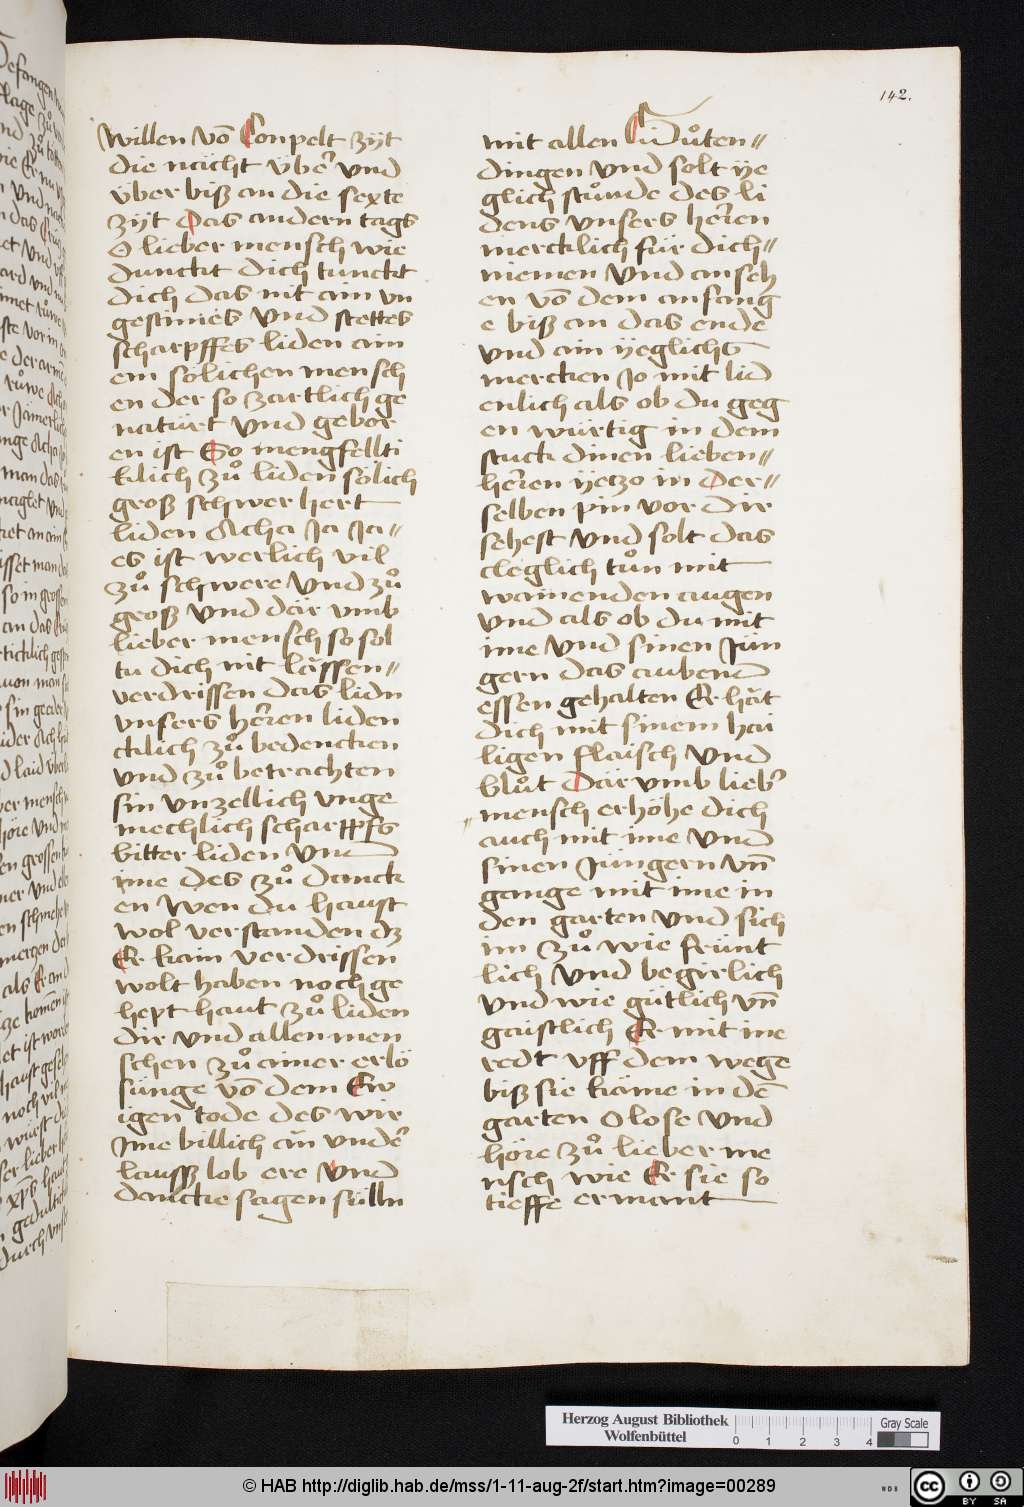 142.
willen võ Conpelt zÿt
die nächt über vnd
über biß an die sexte
zÿt Das andern tags
O lieber mensch wie
dunckt dich tunckt
dich das nit ain vn
gestimes vnd stettes
scharpffes liden aim
em sölichen mensch
en der so zartlich ge
natürt vnd gebor
en ist So mengfellti
klich zů liden sölich
groß schwer hert
liden Acha Ja Ja〃
es ist werlich vil
zů schwere vnd zů
groß vnd där vmb
lieber mensch so sol
tu dich nit laussen〃
verdrissen das lidn
vnsers heren liden
cklich zů bedencken
vnd zů betrachten
sin vnzellich vnge
mechlich scharpffs
bitter liden vnd
ime des zů danck
en Wen du haust
wol verstanden dz
Er kain verdrissen
wolt haben noch ge
hept haut zů liden
dir vnd allen men
schen zů ainer erlö
sünge võ dem Ew
igen tode des wir
Jme billich ön vnder
lausß lob ere vnd
dancke sagen sülln
mit allen Gůten〃
dingen vnd solt ÿe
glich stůnde des li
dens vnsers heren
mercklich für dich〃
niemen vnd anseh
en võ dem anfang
e biß an das ende
vnd ain ÿeglichs
mercken Jo mit lid
enlich als ob du geg
en würtig in dem
stuck dinen lieben〃
heren ÿetzo in Der〃
selben pin vor dir
sehest vnd solt das
cleglich tůn mit
wainenden augen
vnd als ob du mit
ime vnd sinen Jün
gern das aubend
essen gehalten Er hät
dich mit sinem hai
ligen flaisch vnd
blůt Där vmb lieber
mensch erhöhe dich
auch mit ime vnd
sinen Jüngern vñ
gange mit ime in
den garten vnd sich
im zů wie frünt
lich vnd begirlich
vnd wie gütlich vñ
gaistlich Er mit ine
redt vff dem wege
biß sie käme in dẽ
garten O lose vnd
höre zů lieber me
nsch wie Er sie so
tieffe ermant
Herzog August Bibliothek
Wolfenbüttel
0 1 2 3 4
Gray Scale
© HAB http://diglib.hab.de/mss/1-11-aug-2f/start.htm?image=00289
WDB
cc BY SA